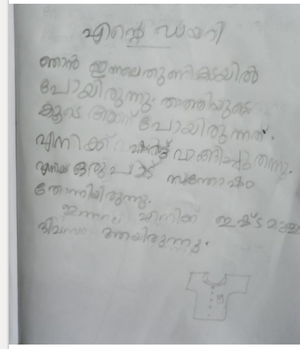 എന്റെ ഡയറി
ഞാൻ ഇന്നലെ തുണികടയിൽ
പോയിരുന്നു. അത്തിയുടെ
കൂടെ ആണ് പോയിരുന്നത്.
എനിക്ക് ഷർട്ട് വാങ്ങിച്ചു തന്നു.
ഒരുപാട് സന്തോഷം
തോന്നിയിരുന്നു.
ഇന്നലെ എനിക്ക് ഇഷ്ടമുള്ള
ദിവസം ആയിരുന്നു.